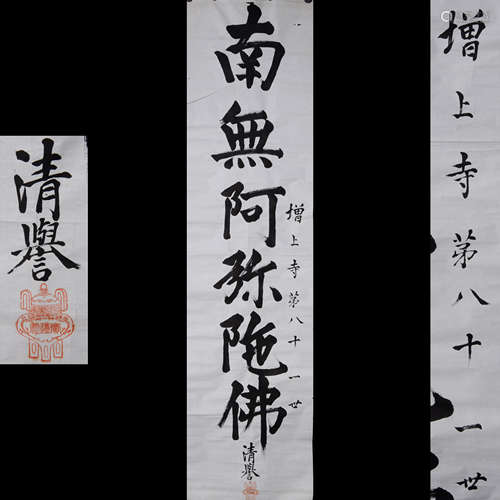 清譽
南無阿弥陀佛
增上寺第八十一世
清譽
增上寺第八十一世